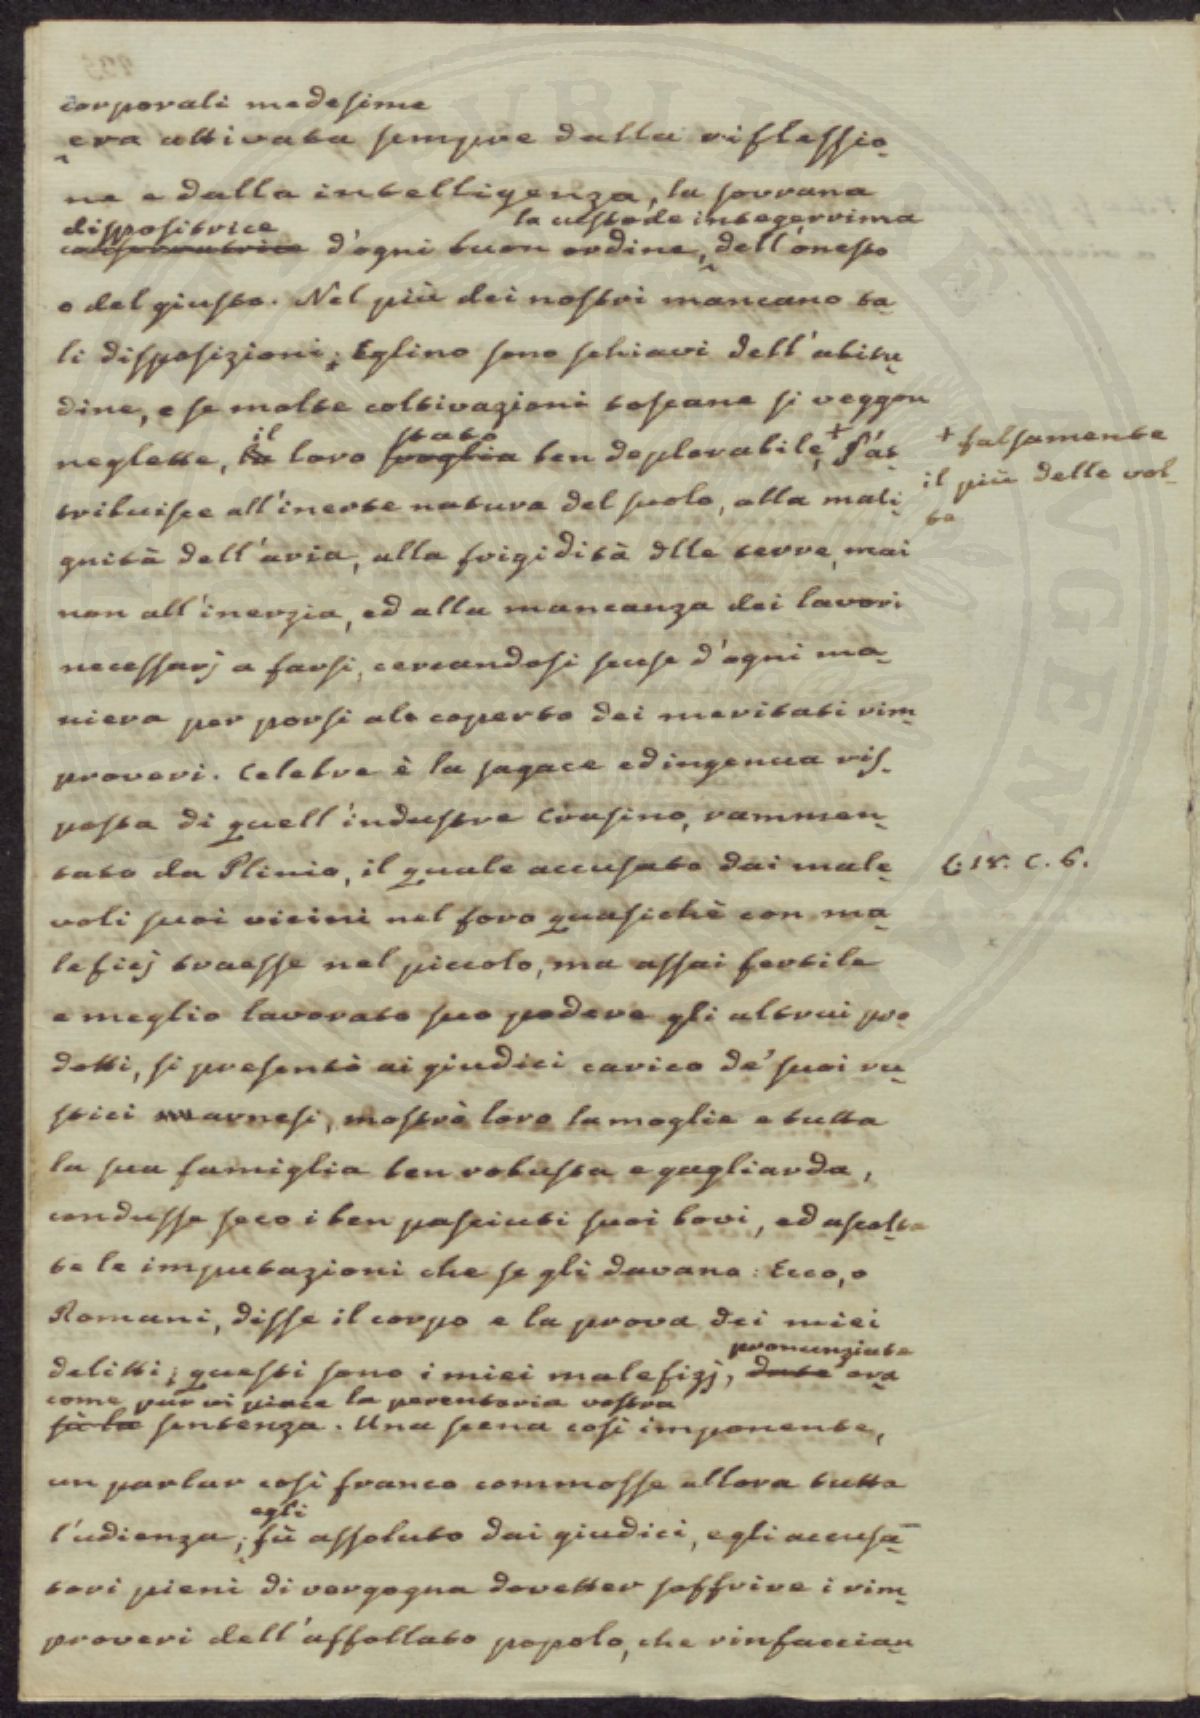 corporali medesime
era attivata sempre dalla riflessio-
ne e dalla intelligenza, la sovrana
dispositrice la custode integerrima
conservatrice d'ogni buon ordine, dell'onesto
o del giusto. Nel più dei nostri mancano ta-
li disposizioni; Eglino sono schiavi dell'abitu-
dine, e se molte coltivazioni toscane si veggon
il stato
neglette, la loro voglia ben deplorabile, + s'at-
+ falsamente
il più delle vol-
te
tribuisce all'inerte natura del suolo, alla mali-
gnità dell'aria, alla frigidità dlle terre, mai
non all'inerzia, ed alla mancanza dei lavori
necessarj a farsi, cercandosi scuse d'ogni ma-
niera per porsi alo coperto dei meritati rim-
proveri. Celebre è la sagace ed ingenua ris-
posta di quell'industre Crasino, rammen-
tato da Plinio, il quale accusato dai male-
l: 18. C. 6.
voli suoi vicini nel foro quasichè con ma-
leficj traesse nel piccolo, ma assai fertile
e meglio lavorato suo podere gli altrui pro-
dotti, si presentò ai giudici carico de' suoi ru-
stici arnesi, mostrò loro la moglie e tutta
la sua famiglia ben robusta e gagliarda,
condusse seco i ben pasciuti suoi bovi, ed ascolta-
te le imputazioni che se gli davano: Ecco, o
Romani, disse il corpo e la prova dei miei
pronunziate
delitti; questi sono i miei malefizj, date ora
come pur vi piace la perentoria vostra
sù la sentenza. Una scena così imponente,
un parlar così franco commosse allora tutta
egli
l'udienza; fù assoluto dai giudici, e gli accusa-
tori pieni di vergogna dovetter soffrire i rim-
proveri dell'affollato popolo, che rinfaccian-